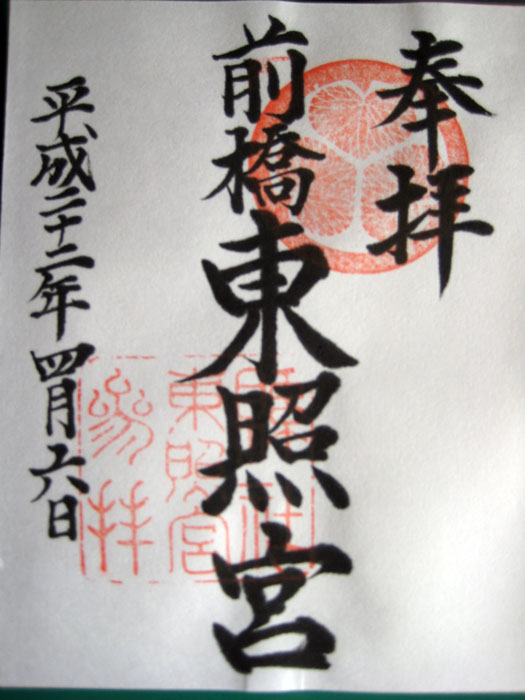 奉拝
前橋東照宮
平成二十二年四月六日
東照宮
参拝